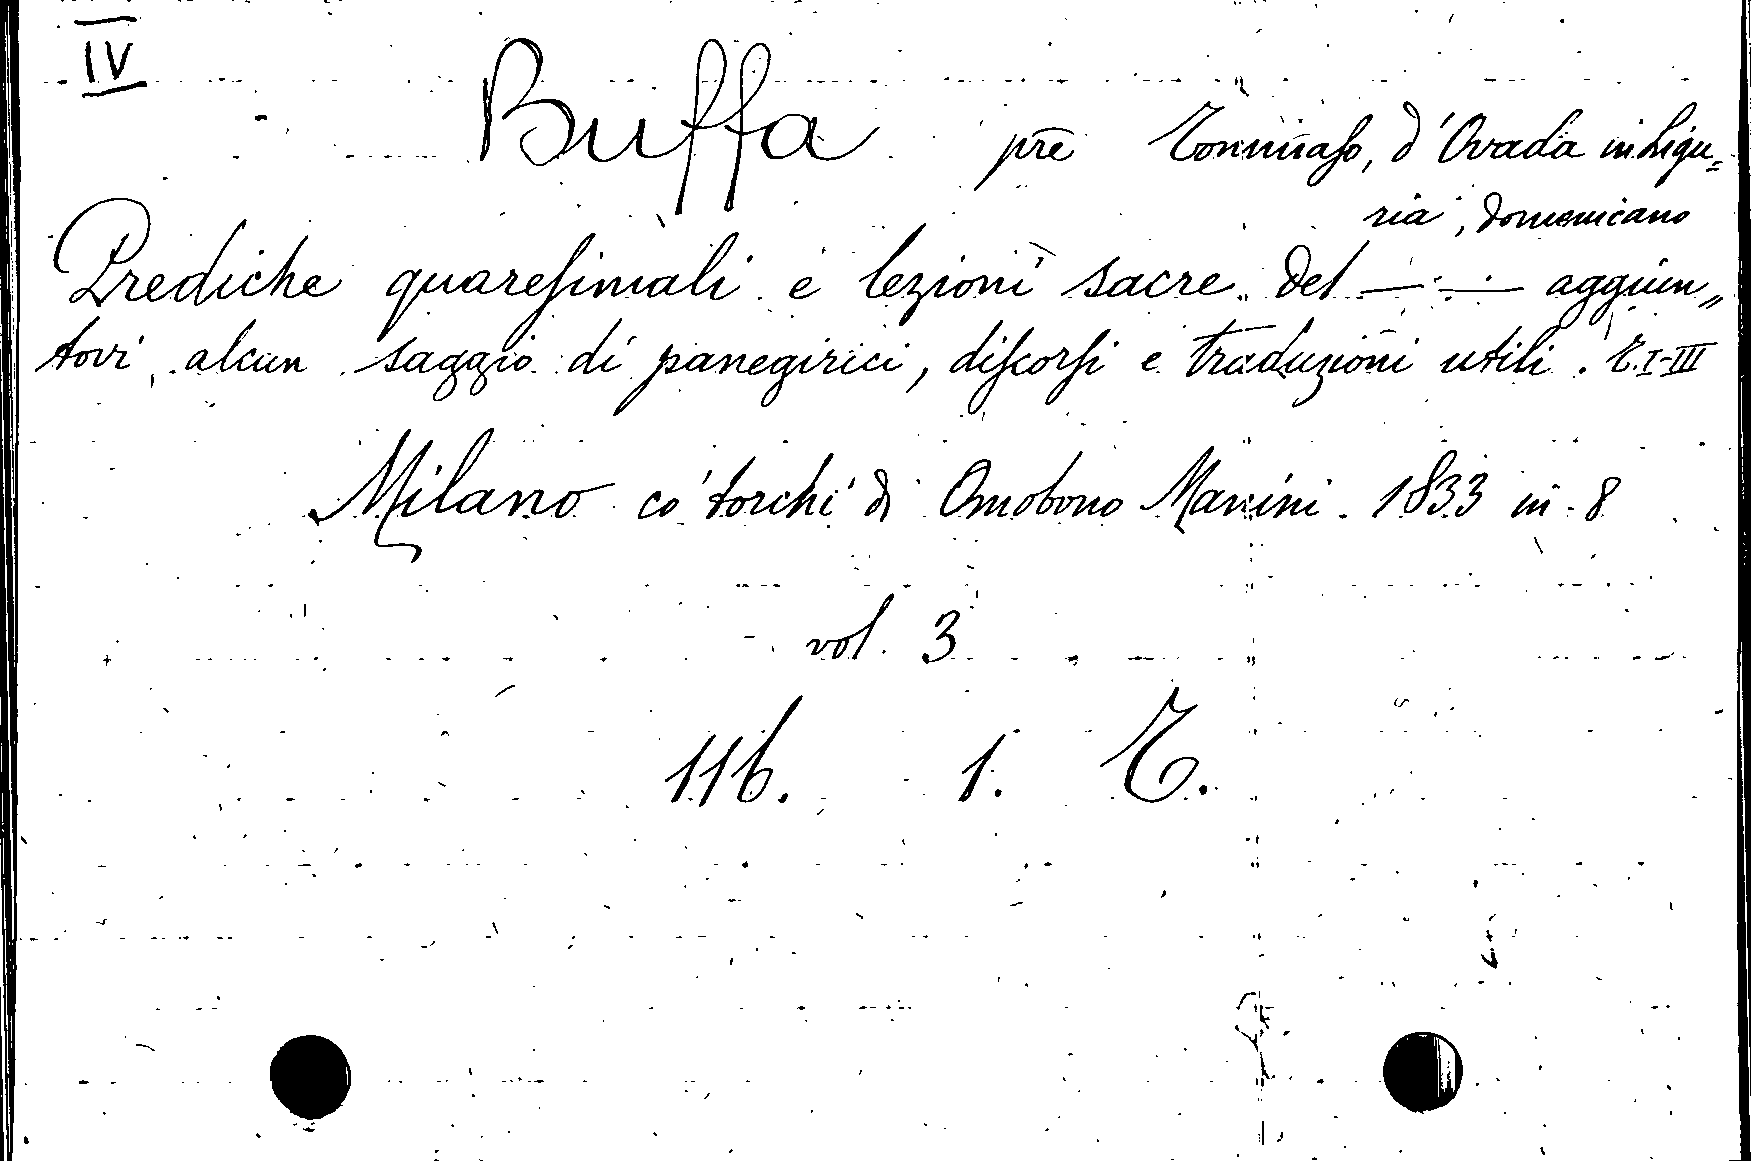 IV
Buffa prē Tommaso, d'Ovada in Ligu=
ria, domenicano
Prediche quaresimali e lezioni sacre del —·— aggiun„
tovi alcun saggio di panegirici, discorsi e traduzioni utili. T. I-III
Milano co' torchi di Omobono Manini. 1833 in 8
vol. 3
116. 1. T.